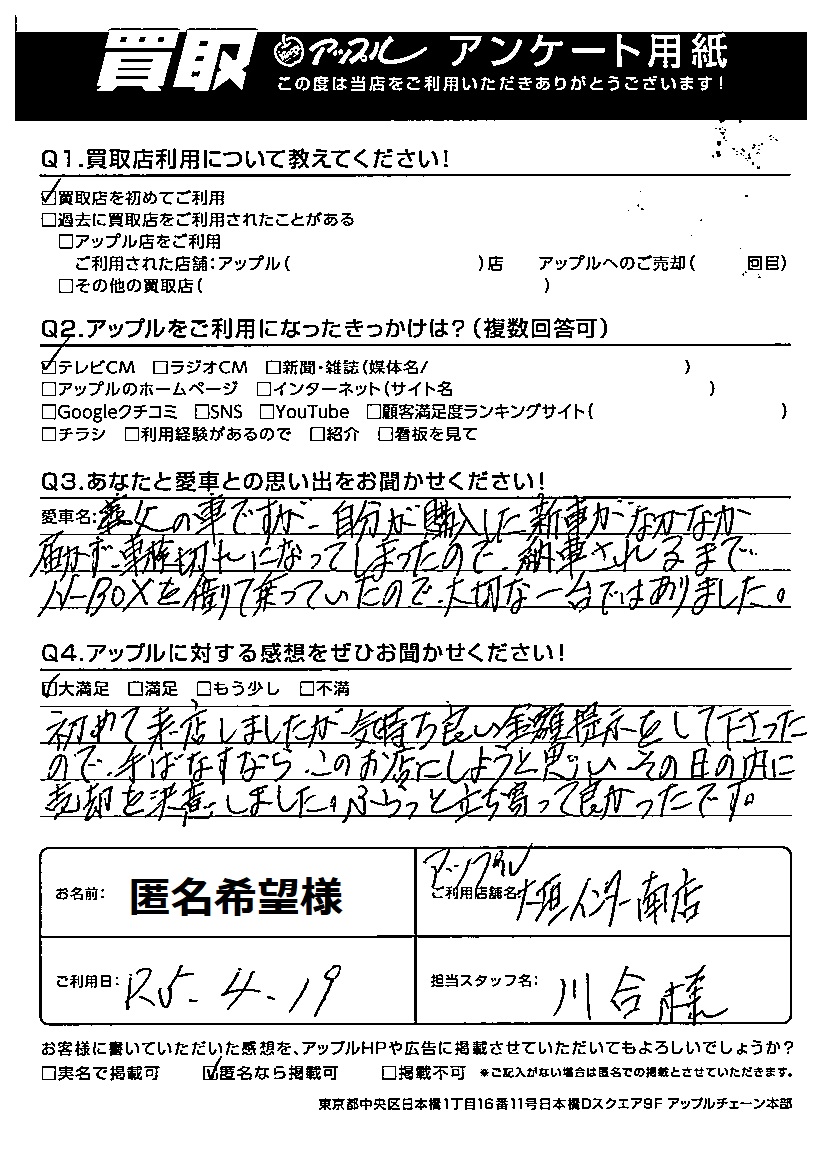 買取 アップル アンケート用紙
この度は当店をご利用いただきありがとうございます!
Q1.買取店利用について教えてください!
☑買取店を初めてご利用
□過去に買取店をご利用されたことがある
□アップル店をご利用
ご利用された店舗:アップル( )店 アップルへのご売却( 回目)
□その他の買取店( )
Q2.アップルをご利用になったきっかけは?(複数回答可)
☑テレビCM □ラジオCM □新聞・雑誌(媒体名/ )
□アップルのホームページ □インターネット(サイト名 )
□Googleクチコミ □SNS □YouTube □顧客満足度ランキングサイト( )
□チラシ □利用経験があるので □紹介 □看板を見て
Q3.あなたと愛車との思い出をお聞かせください!
愛車名:義父の車ですが、自分が購入した新車がなかなか
届かず、車検切れになってしまったので、納車されるまで
N-BOXを借りて乗っていたので、大切な一台ではありました。
Q4.アップルに対する感想をぜひお聞かせください!
☑大満足 □満足 □もう少し □不満
初めて来店しましたが、気持ち良い金額提示をして下さった
ので、手ばなすなら、このお店にしようと思い、その日の内に
売却を決意しました。ふらっと立ち寄って良かったです。
お名前: 匿名希望様
ご利用店舗名: アップル 大垣インター南店
ご利用日: R5.4.19
担当スタッフ名: 川合様
お客様に書いていただいた感想を、アップルHPや広告に掲載させていただいてもよろしいでしょうか?
□実名で掲載可 ☑匿名なら掲載可 □掲載不可 ※ご記入がない場合は匿名での掲載とさせていただきます。
東京都中央区日本橋1丁目16番11号日本橋Dスクエア9F アップルチェーン本部